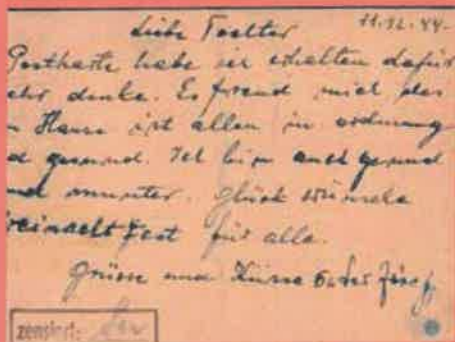 11.12.44.
Liebe Toelter
Postkarte habe ich erhalten dafür
ehr danke. Es freud mich das
Hause ist allen in ordnung
d gesund. Ich bin auch gesund
nd munter. Glück wünsche
weinacht Fest für alle.
Grüsse und Küsse Vater Josef.
zensiert: